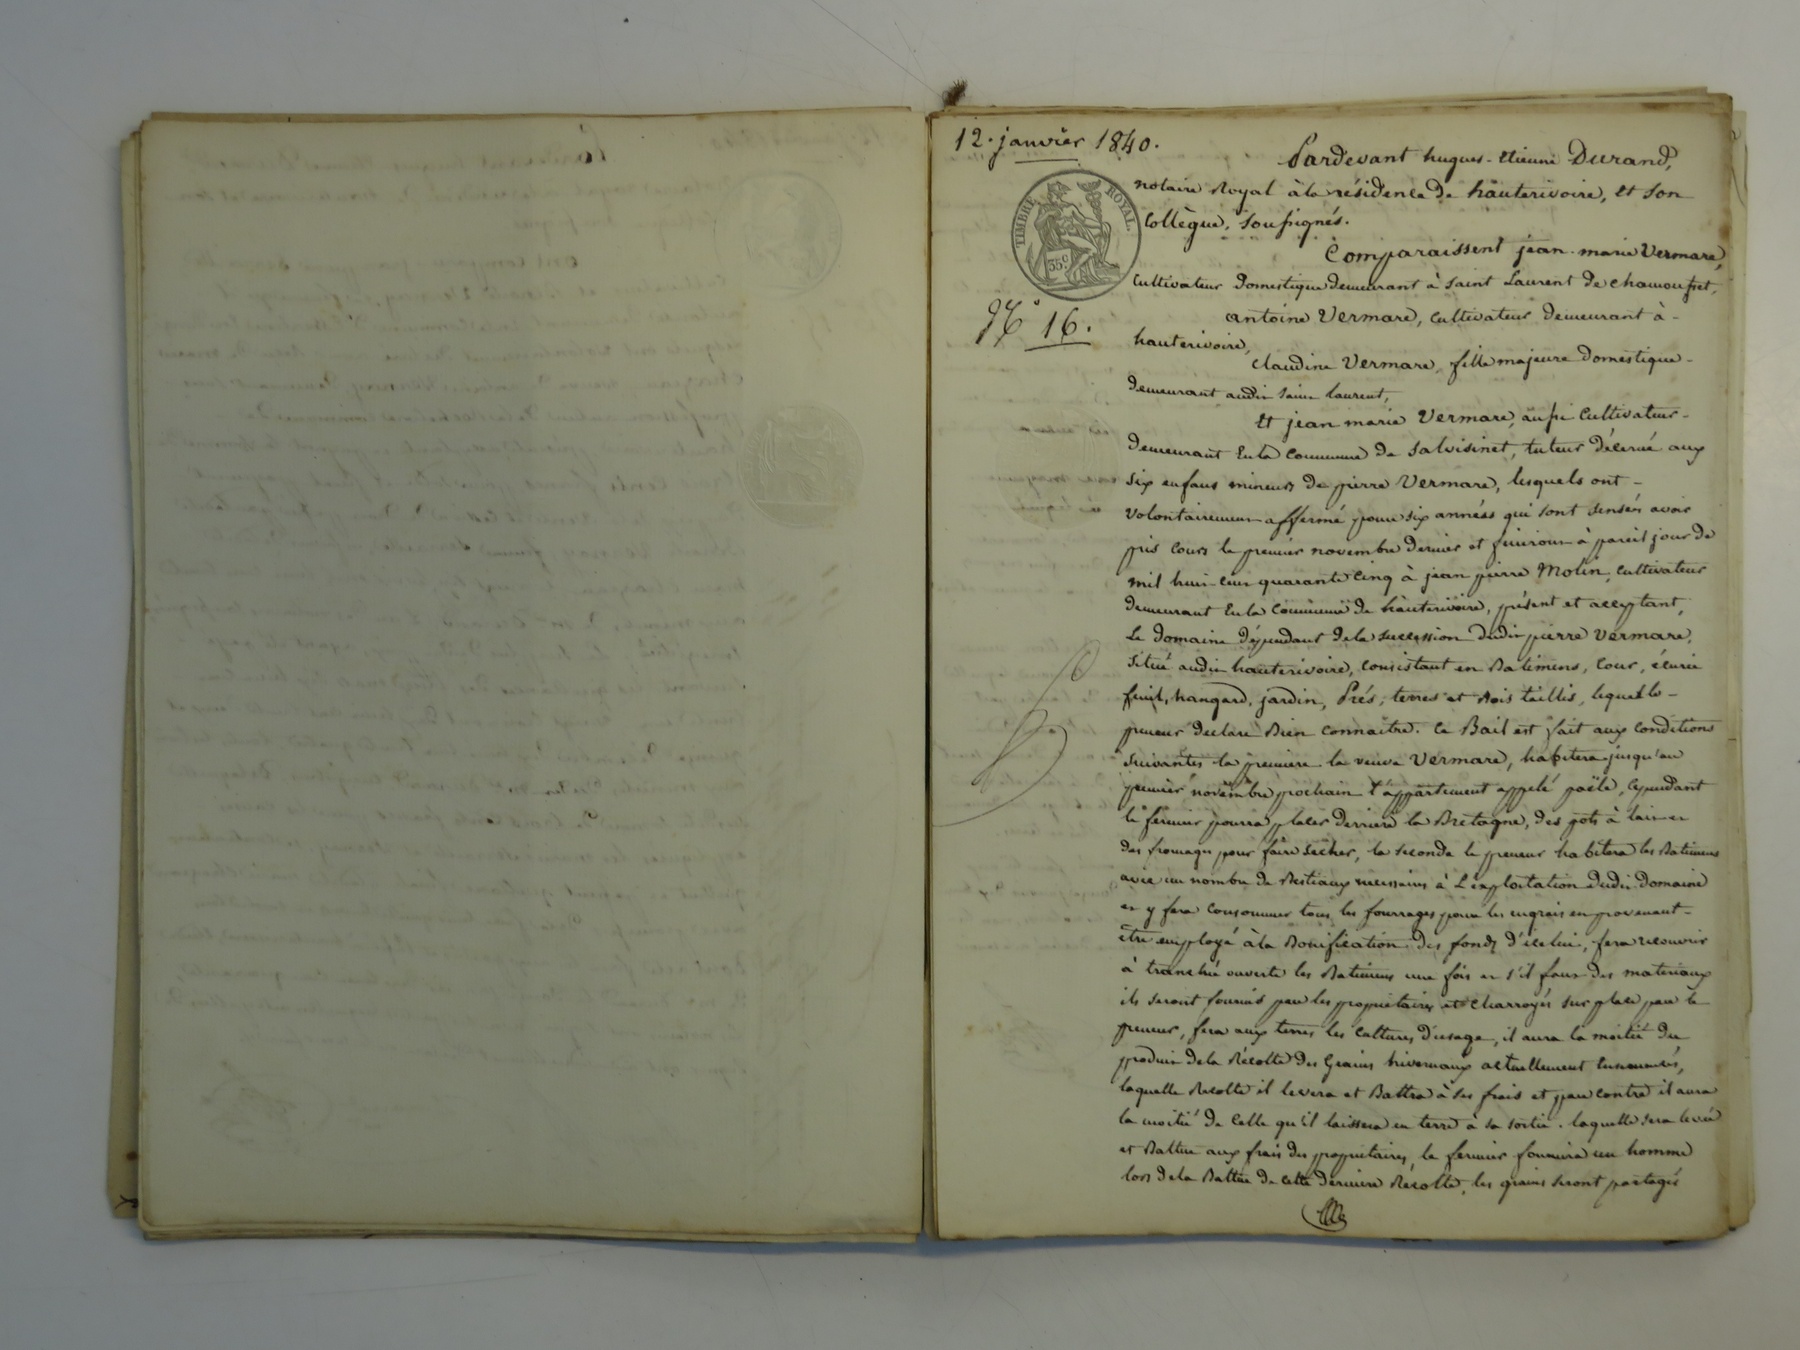 12. janvier 1840.
TIMBRE ROYAL.
35 c
N° 16.
Pardevant hugues-Etienne Durand,
notaire Royal à la résidence de hauterivoire, et son
Collègue, soussignés.
Comparaissent jean-marie Vermare,
Cultivateur Domestique demeurant à Saint Laurent de chamousset,
antoine Vermare, Cultivateur demeurant à-
hauterivoire,
Claudine Vermare, fille majeure Domestique-
demeurant audit Saint Laurent,
Et jean marie Vermare, aussi Cultivateur-
demeurant En la Commune de Salvisinet, tuteur décerné aux
six enfans mineurs de pierre Vermare, lesquels ont-
Volontairement affermé pour six années qui sont sensés avoir
pris cours le premier novembre dernier et finiront à pareil jour de
mil huit cent quarante cinq à jean pierre Molin, cultivateur
demeurant En la Commune de hauterivoire, présent et acceptant,
Le Domaine dépendant de la succession dudit pierre Vermare,
situé audit hauterivoire, consistant en Batimens, Cour, écurie
fenil, hangard, jardin, Prés, terres et Bois taillis, lequel le-
preneur declare Bien connaitre. Ce Bail est fait aux conditions
suivantes la première la veuve Vermare, habitera jusqu'au
premier novembre prochain l'appartement appelé poële, Cependant
le fermier pourra placer derriere la Bretagne, des pots à lait et
des fromages pour faire secher, la seconde le preneur habitera les Batimens
avec un nombre de Bestiaux necessaires à L'exploitation dudit Domaine
et y fera consommer tous les fourrages pour les engrais en provenant-
être employé à la Bonification des fonds d'icelui, fera recouvrir
à tranchée ouverte les Batimens une fois et s'il faut des materiaux
ils seront fournis par les propriétaires et charroyés sur place par le
preneur, fera aux terres les cultures d'usage, il aura la moitié du
produit de la Récolte des Grains hivernaux actuellement ensemencés,
laquelle Recolte il levera et Battra à ses frais et par contre il aura
la moitié de Celle qu'il laissera en terre à sa sortie. laquelle sera levée
et Battue aux frais des propriétaires, le fermier fournira un homme
lors de la Battue de cette derniere Recolte, les grains seront partagés